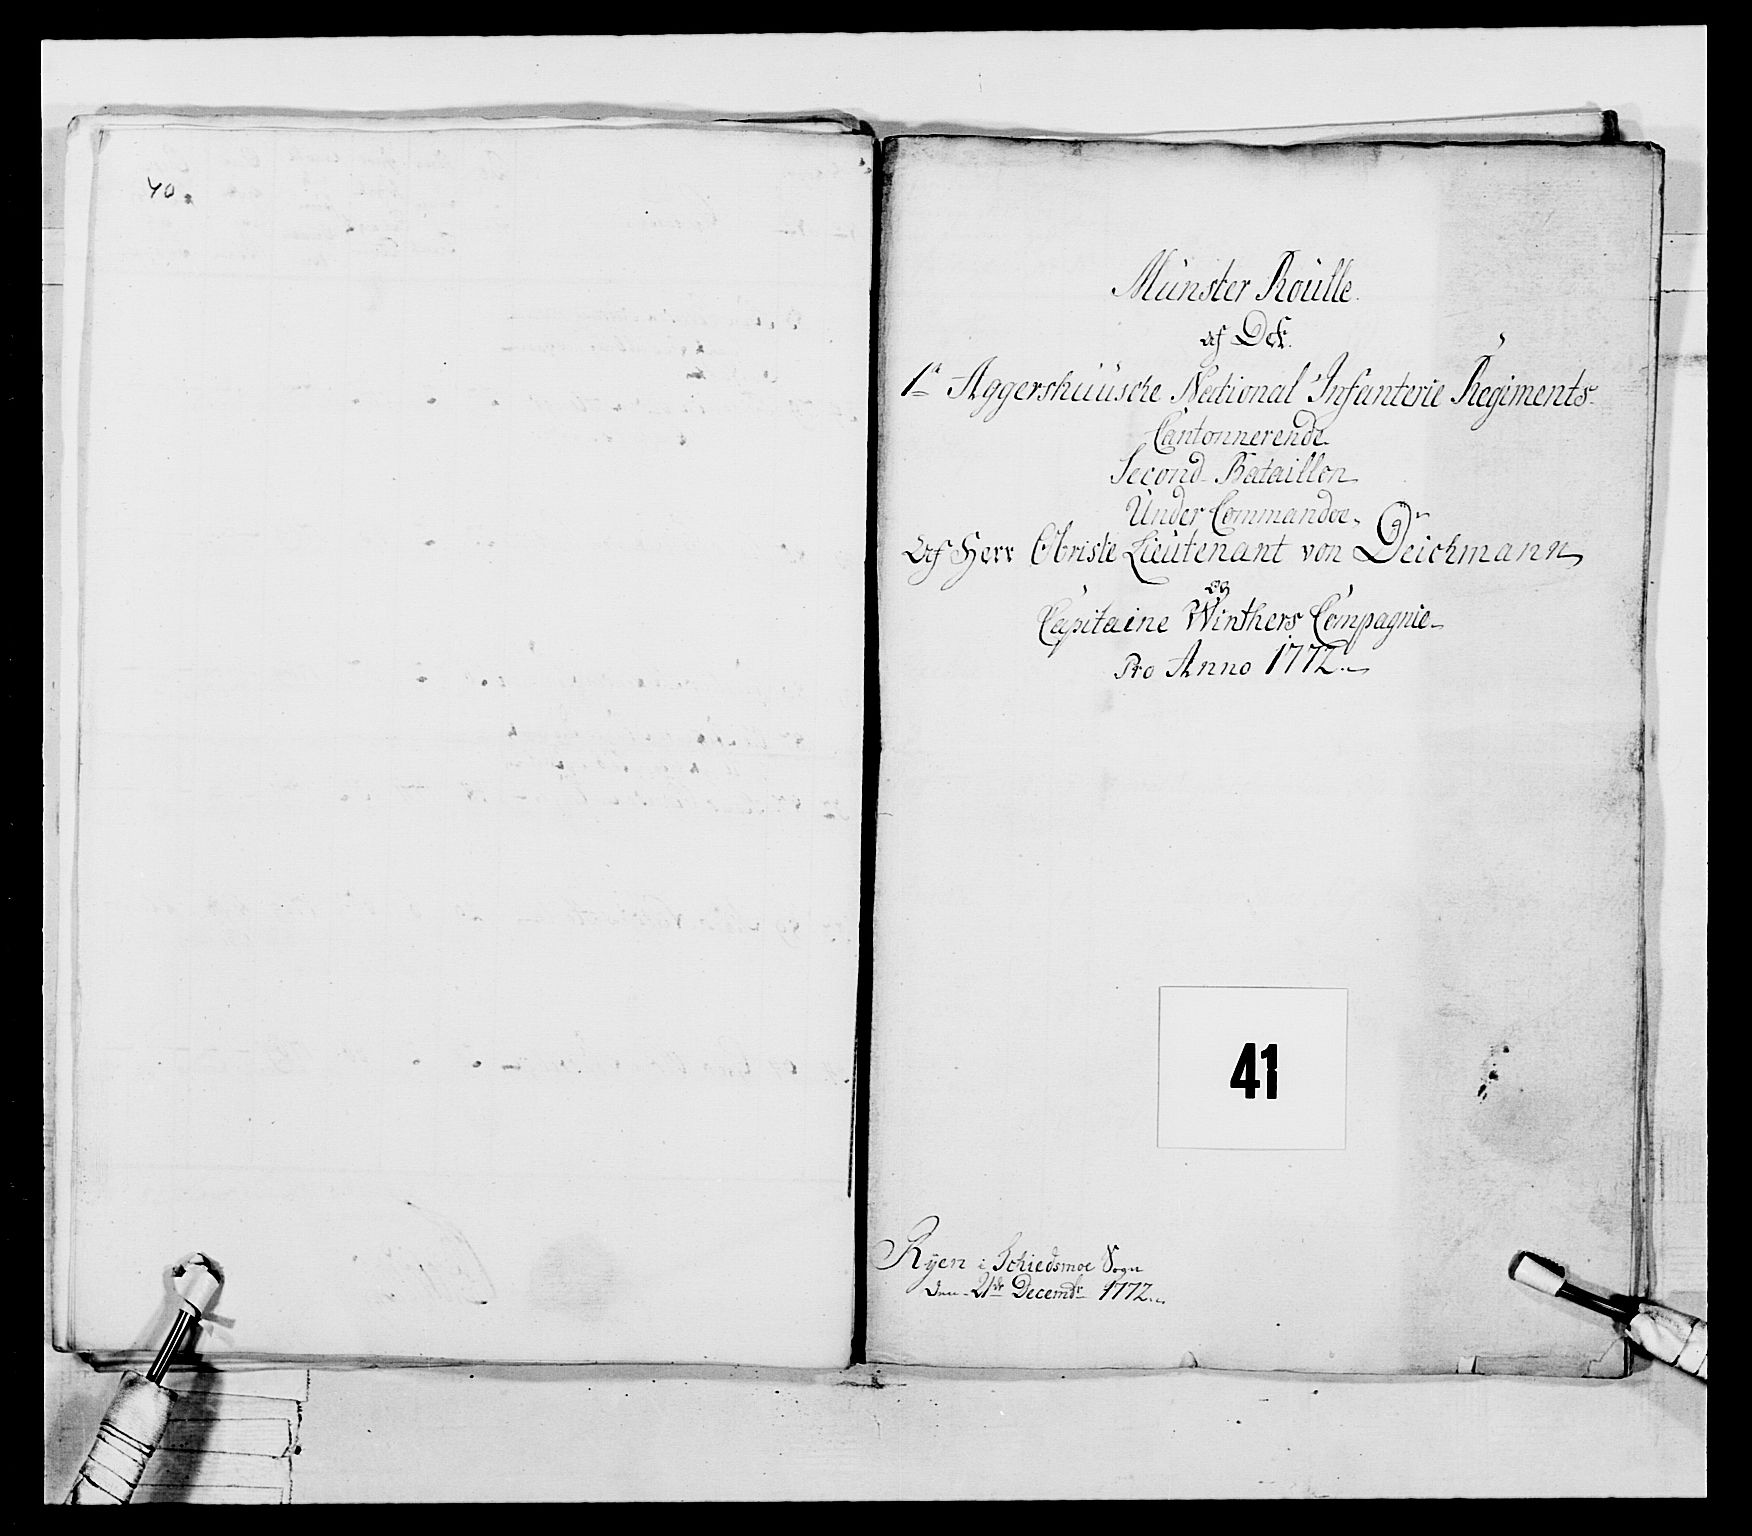 40.
Münster Roulle.
af Det.
1te Aggershuusche National Infanterie Regiments
Cantonnerende
Second Bataillon
Under Commandoe
Af Herr Obriste Lieutenant von Deichmann
og
Capitaine Winthers Compagnie
Pro Anno 1772.
41
Ryen i Schiedsmoe Sogn
den 21de Decembr 1772.